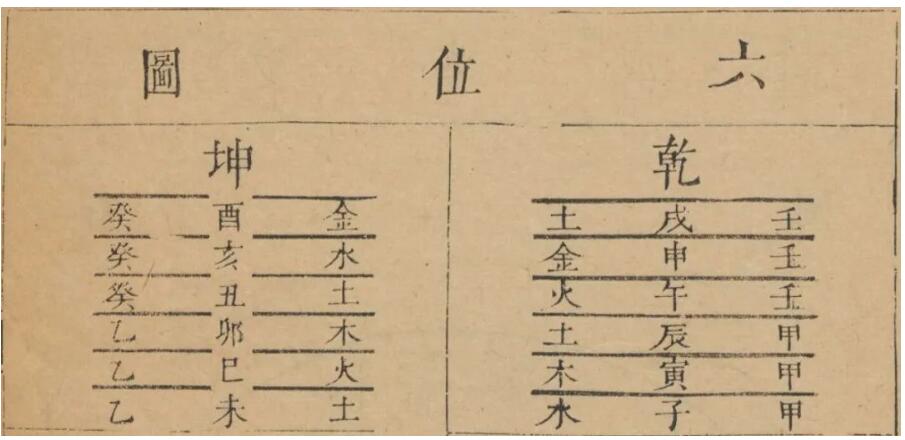 六位圖
乾
壬戌土
壬申金
壬午火
甲辰土
甲寅木
甲子水
坤
金酉癸
水亥癸
土丑癸
木卯乙
火巳乙
土未乙